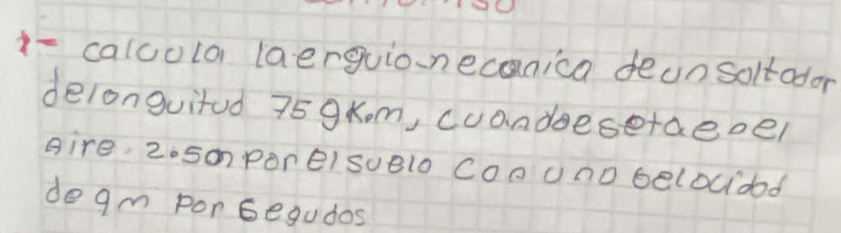 1- calcula la erguio necanica de un saltador
de longuitud 75 gKom, cuando esetaeoel
Aire. 2.50n por el suelo con una belocidad
de 9m por segudos